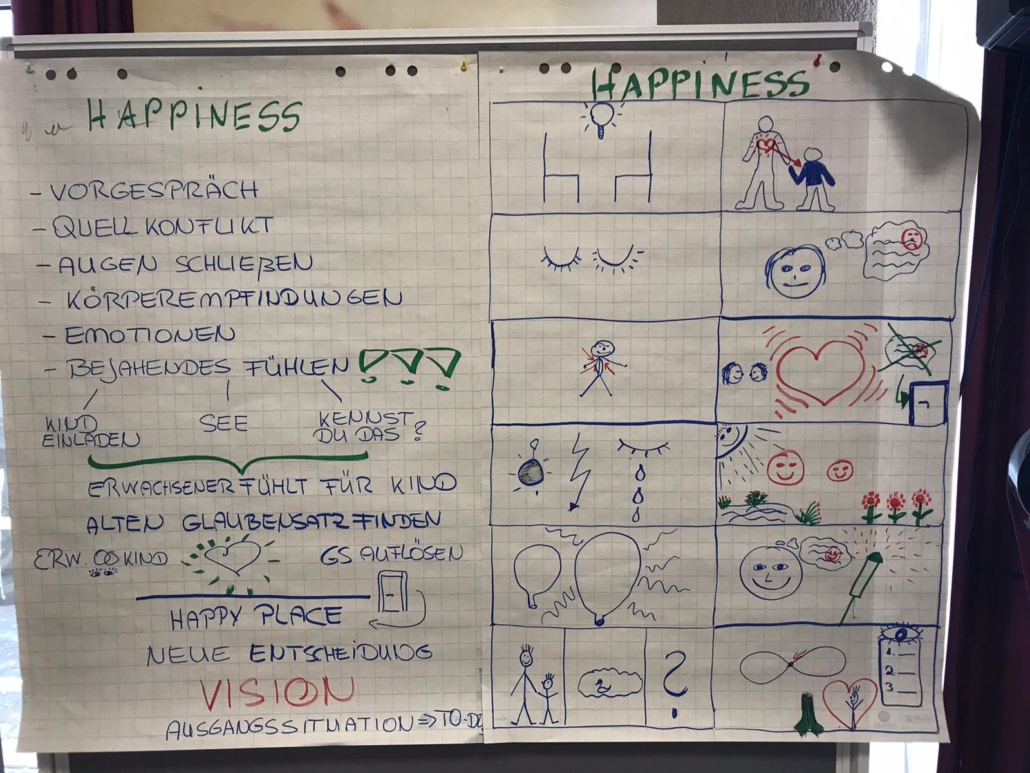 HAPPINESS
- VORGESPRÄCH
- QUELL KONFLIKT
- AUGEN SCHLIEßEN
- KÖRPEREMPFINDUNGEN
- EMOTIONEN
- BEJAHENDES FÜHLEN !!!
KIND EINLADEN
SEE
KENNST DU DAS?
ERWACHSENER FÜHLT FÜR KIND
ALTEN GLAUBENSATZ FINDEN
ERW. KIND
GS AUFLÖSEN
HAPPY PLACE
NEUE ENTSCHEIDUNG
VISION
AUSGANGSSITUATION => TO-DO
HAPPINESS
?
1.
2
3